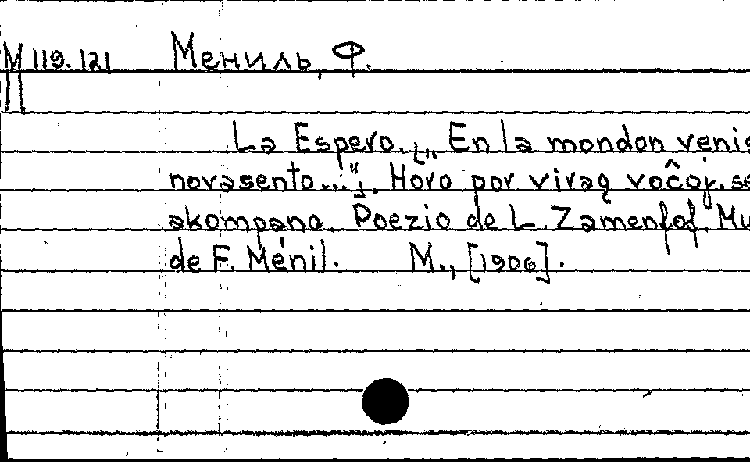 М 119.121 Мениль, Ф.
II
La Espero. [„En la mondon venis
novasento..."]. Horo por viraq voĉoj. se
akompano. Poezio de L. Zamenfof. Mu
de F. Ménil. M., [1906].